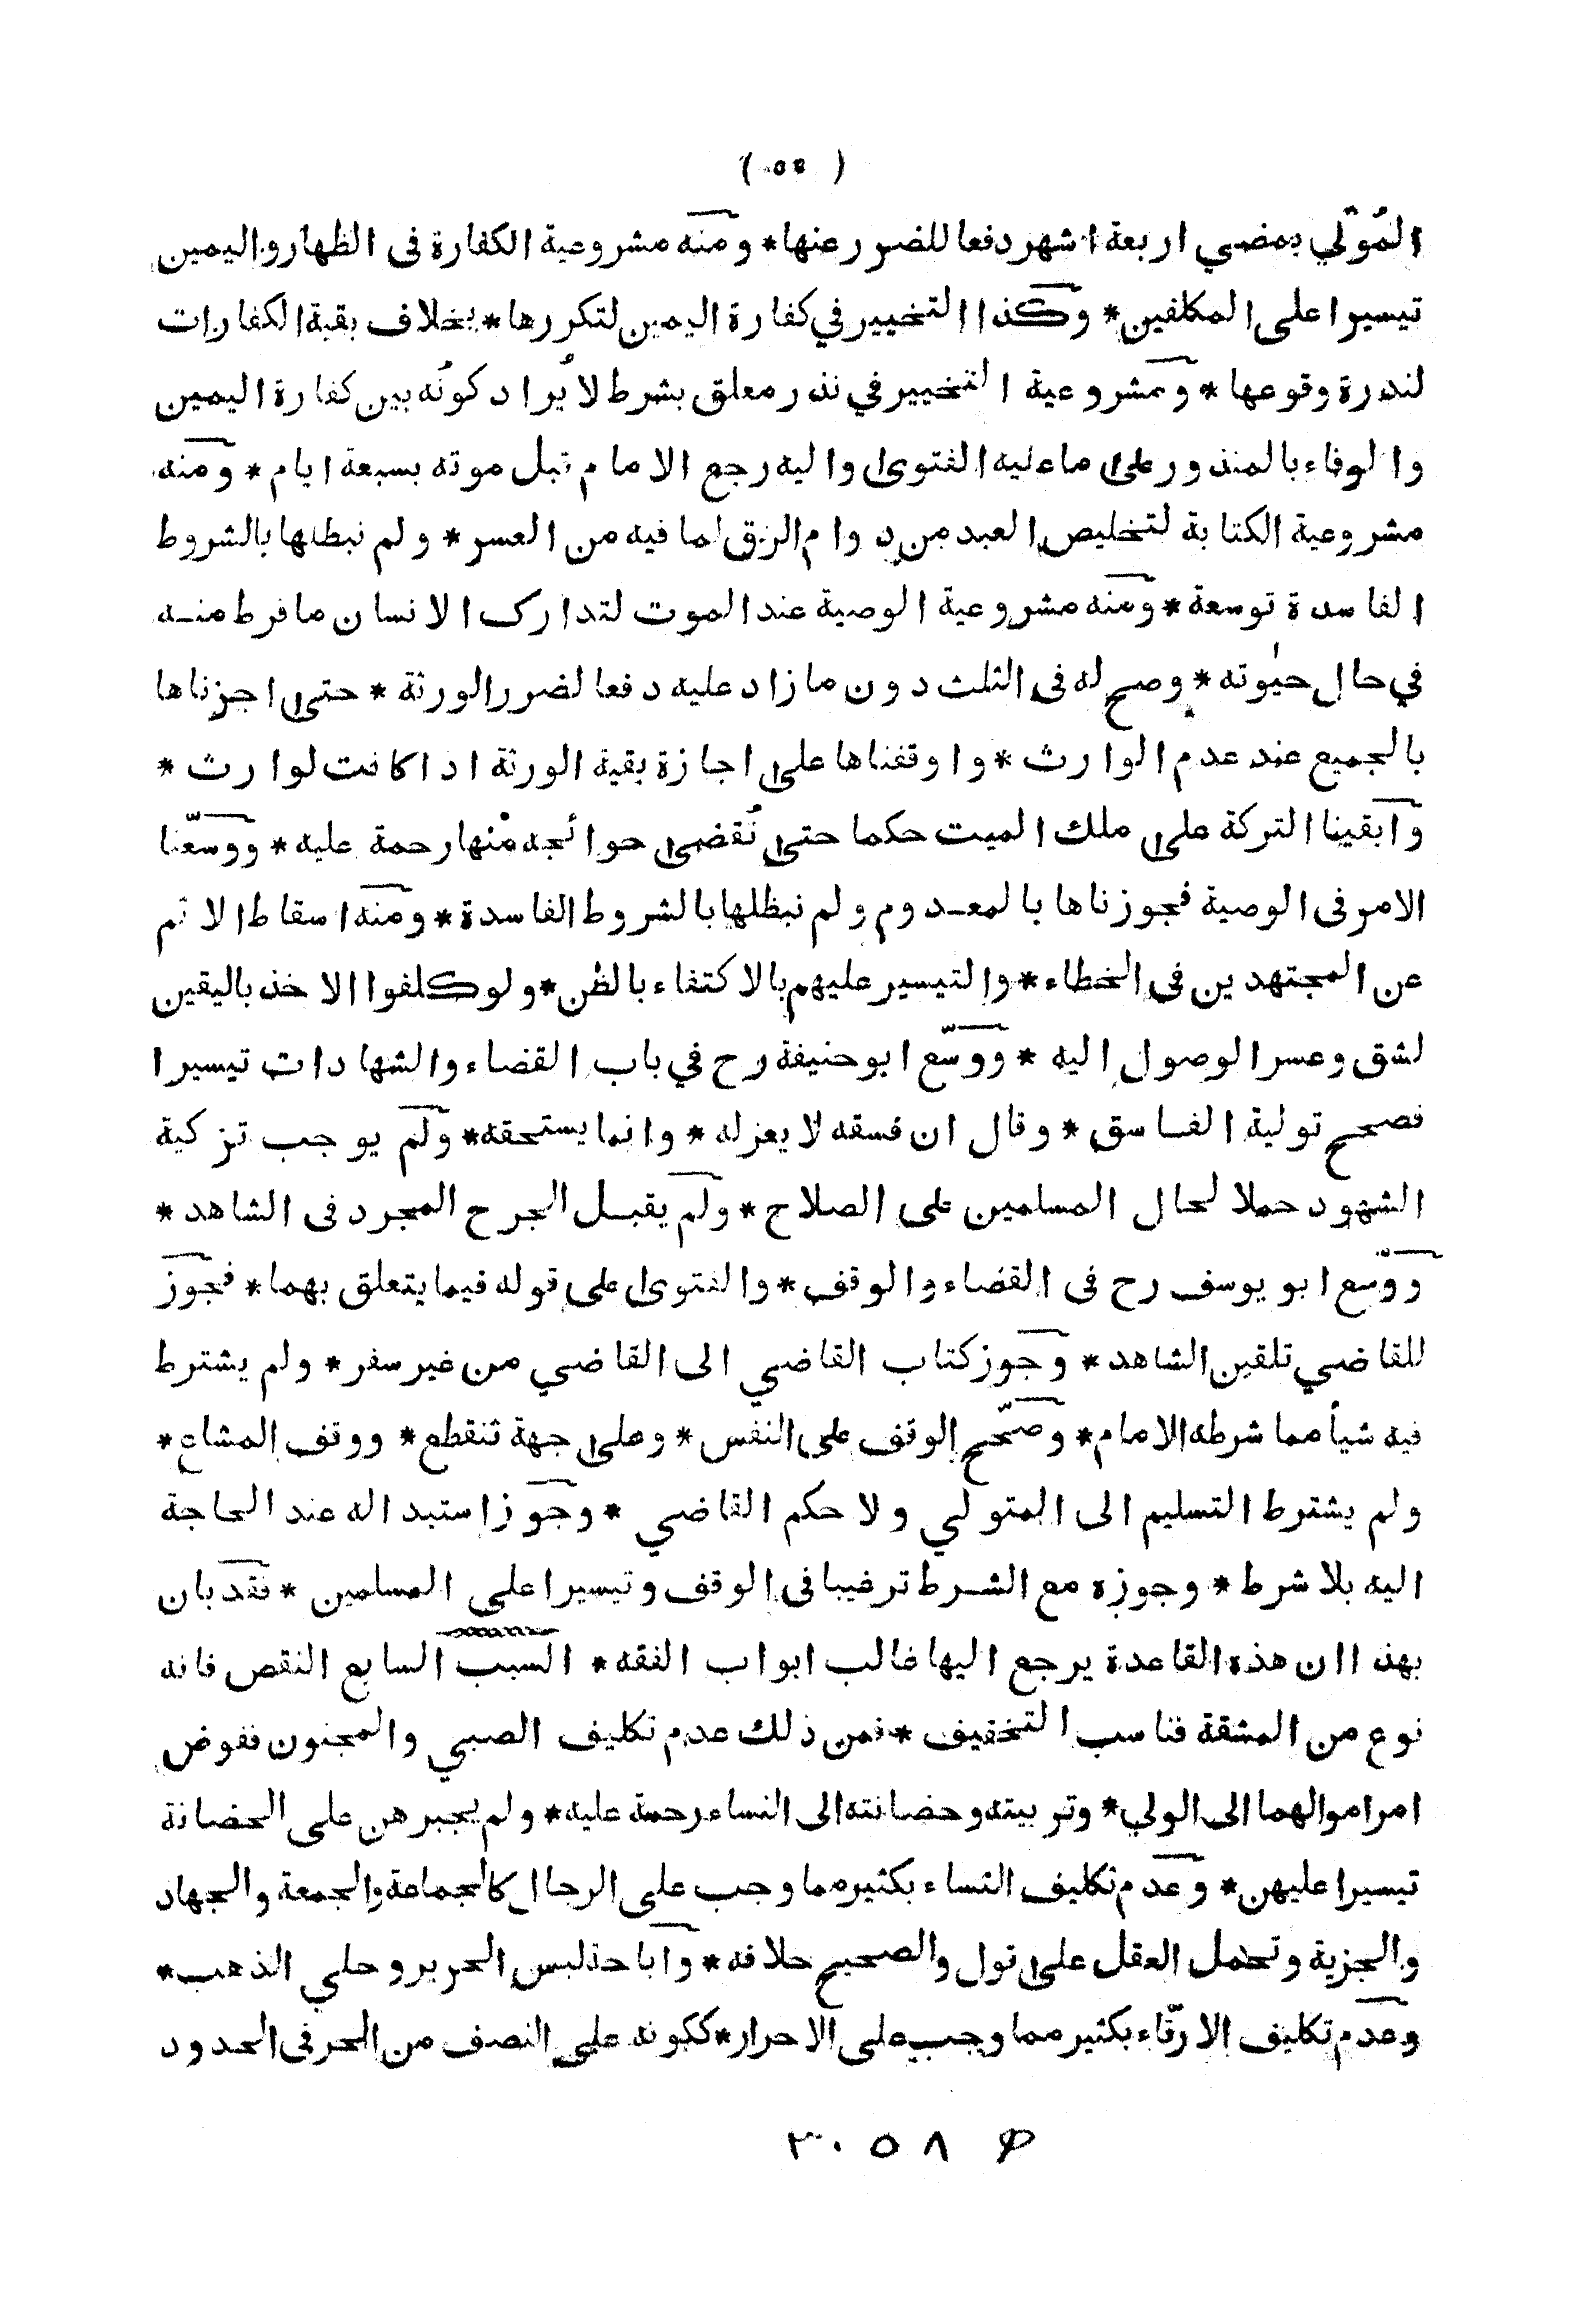 ( ٥٤ )
المُوْلي بمضي اربعة اشهر دفعا للضرر عنها * ومنه مشروعية الكفارة فى الظهار واليمين
تيسيرا على المكلفين * وكذا التخيير في كفارة اليمين لتكررها * بخلاف بقية الكفارات
لندرة وقوعها * ومشروعية التخيير في نذر معلق بشرط لا يُراد كونُه بين كفارة اليمين
والوفاء بالمنذور على ما عليه الفتوى واليه رجع الامام قبل موته بسبعة ايام * ومنه
مشروعية الكتابة لتخليص العبد من دوام الرق لما فيه من العسر * ولم نبطلها بالشروط
الفاسدة توسعة * ومنه مشروعية الوصية عند الموت لتدارك الانسان ما فرط منه
في حال حيٰوته * وصح له فى الثلث دون ما زاد عليه دفعا لضرر الورثة * حتى اجزناها
بالجميع عند عدم الوارث * واوقفناها على اجازة بقية الورثة اذا كانت لوارث *
وابقينا التركة على ملك الميت حكما حتى تُقضى حوائجه منْها رحمة عليه * ووسّعنا
الامر فى الوصية فجوزناها بالمعدوم ولم نبطلها بالشروط الفاسدة * ومنه اسقاط الاثم
عن المجتهدين في الخطاء * والتيسير عليهم بالاكتفاء بالظن * ولو كلفوا الاخذ باليقين
لشق وعسر الوصول اليه * ووسّع ابو حنيفة رح في باب القضاء والشهادات تيسيرا
فصحح تولية الفاسق * وقال ان فسقه لا يعزله * وانما يستحقه * ولم يوجب تزكية
الشهود حملا لحال المسلمين على الصلاح * ولم يقبل الجرح المجرد فى الشاهد *
ووسّع ابو يوسف رح فى القضاء والوقف * والفتوى على قوله فيما يتعلق بهما * فجوز
للقاضي تلقين الشاهد * وجوز كتاب القاضي الى القاضي من غير سفر * ولم يشترط
فيه شيأ مما شرطه الامام * وصحّح الوقف على النفس * وعلى جهة تنقطع * ووقف المشاع *
ولم يشترط التسليم الى المتولي ولا حكم القاضي * وجوز استبداله عند الحاجة
اليه بلا شرط * وجوزه مع الشرط ترغيبا فى الوقف وتيسيرا على المسلمين * فقد بان
بهذا ان هذه القاعدة يرجع اليها غالب ابواب الفقه * السبب السابع النقص فانه
نوع من المشقة فناسب التخفيف * فمن ذلك عدم تكليف الصبي والمجنون ففوض
امر اموالهما الى الولي * وتربيته وحضانته الى النساء رحمة عليه * ولم يجبرهن على الحضانة
تيسيرا عليهن * وعدم تكليف النساء بكثير مما وجب على الرجال كالجماعة والجمعة والجهاد
والجزية وتحمل العقل على قول والصحيح خلافه * واباحة لبس الحرير وحلي الذهب *
وعدم تكليف الارقّاء بكثير مما وجب على الاحرار * ككونه على النصف من الحر فى الحدود
٣٠٥٨